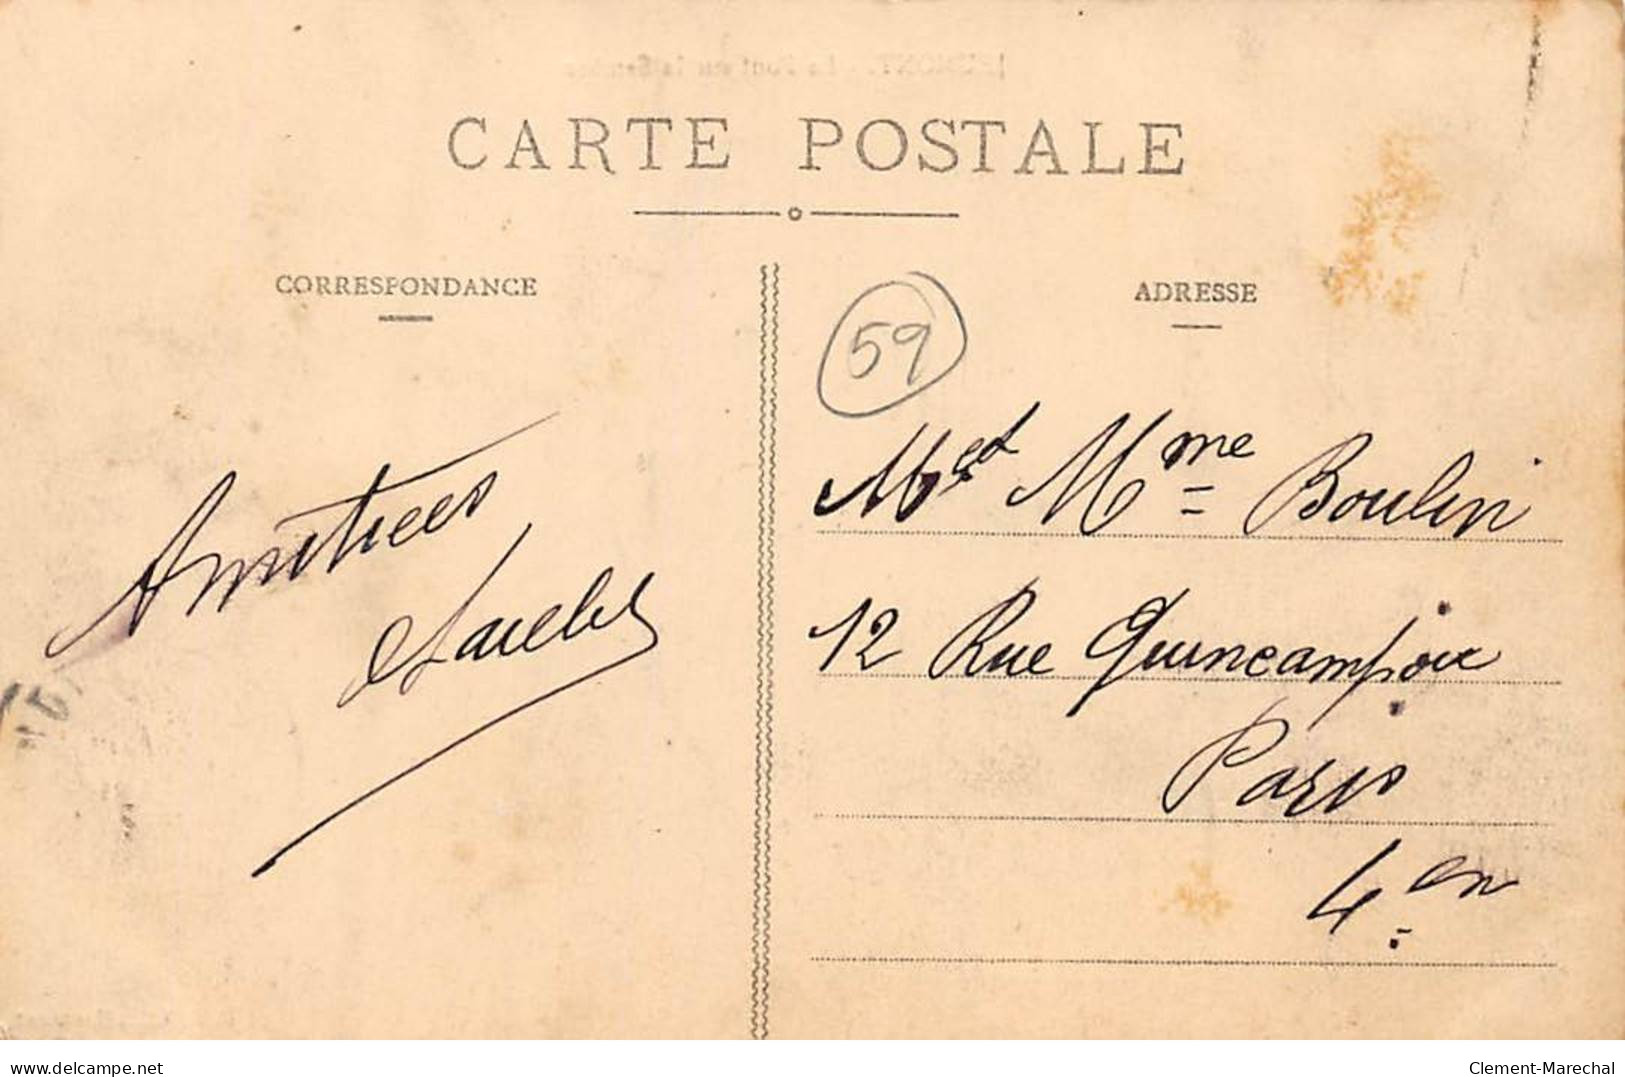 CARTE POSTALE
CORRESPONDANCE
ADRESSE
59
Amitiees
M et Mme Boulin
12 Rue Quincampoix
Paris
4 en
delcampe.net
Clement-Marechal